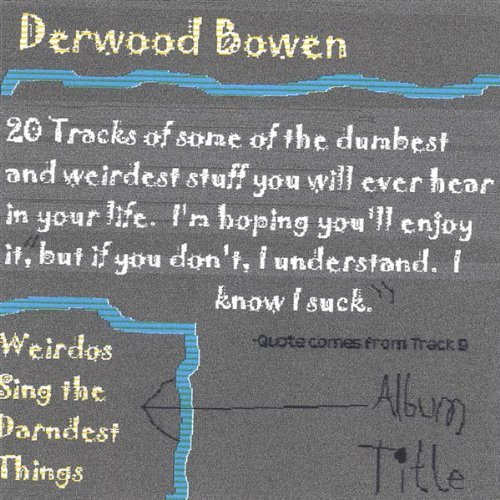 Derwood Bowen
20 Tracks of some of the dumbest
and weirdest stuff you will ever hear
in your life. I'm hoping you'll enjoy
it, "but if you don't, I understand. I
know I suck."
-Quote comes from Track 9
Weirdos
Sing the
Darndest
Things
Album
Title